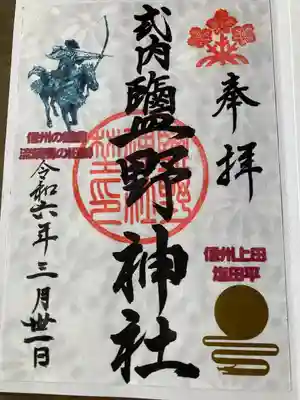 奉拝
信州上田
塩田平
式内鹽野神社
信州の鎌倉
令和六年三月卅一日